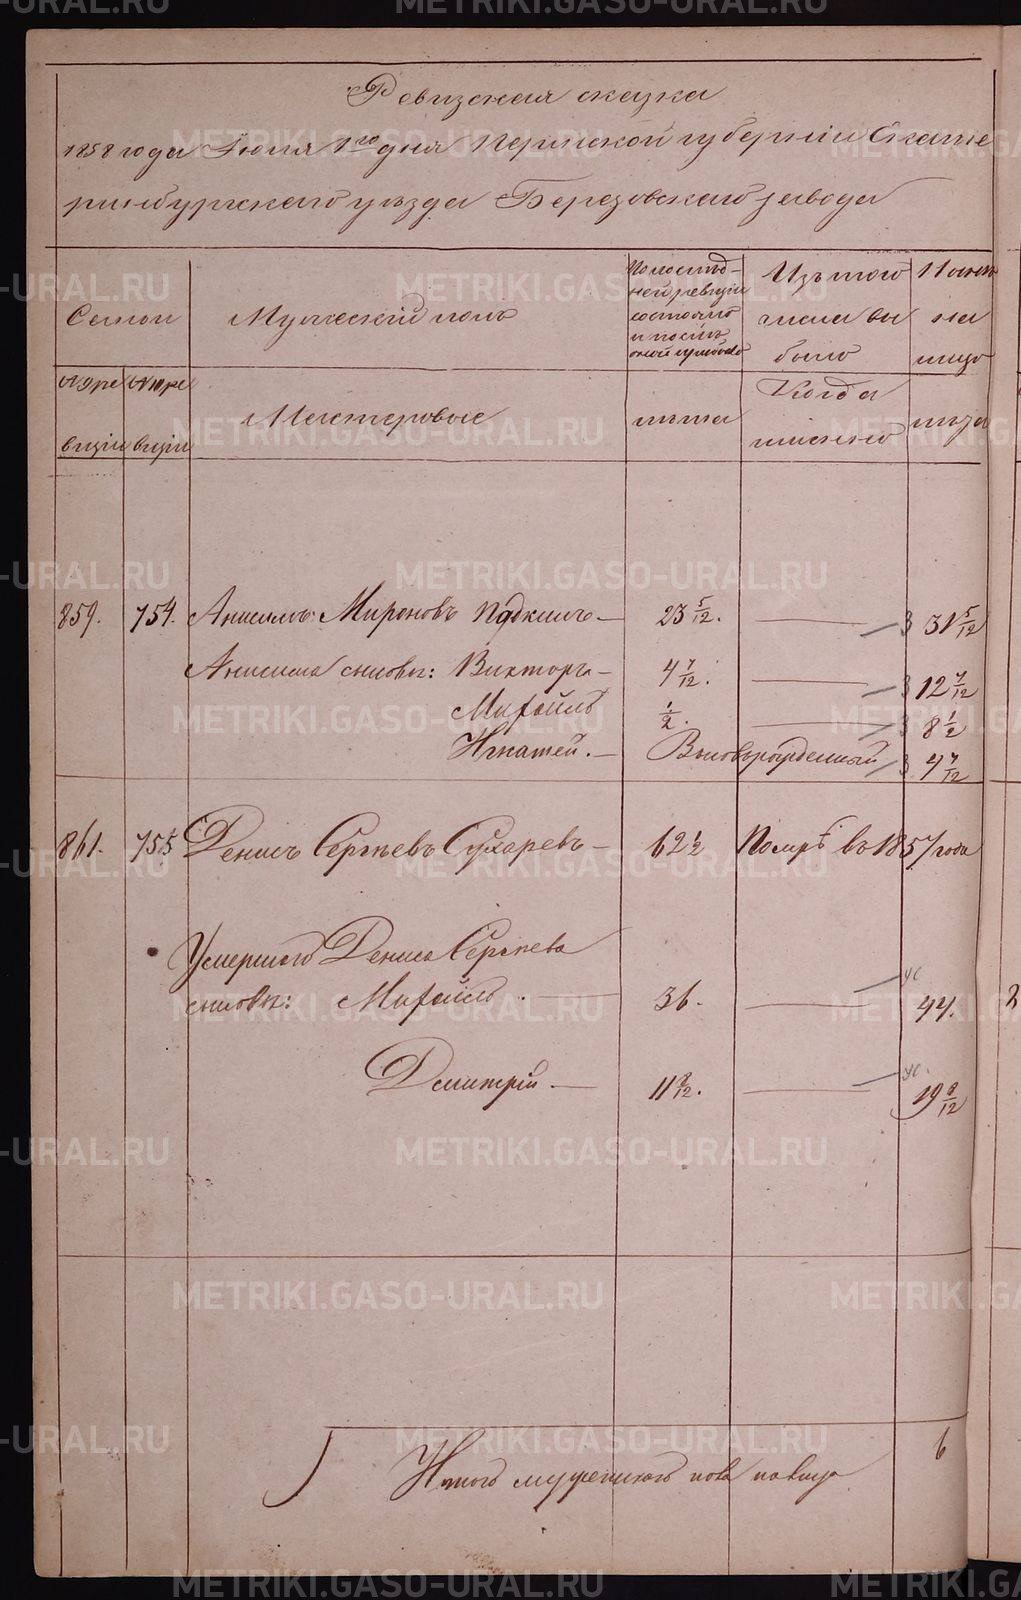 Ревизская сказка
1858 года Июня 1го дня Пермской губернiи Екате
ринбургскаго уѣзда Березовскаго завода
Семьи
Мужескiй полъ
По послѣд-
ней ревизiи
состояло
и послѣ
оной прибыло
Изъ того
числа вы
было
Нынѣ
на
лицо
№ 9 ре
визiи
№ 10 ре
визiи
Мастеровые
лѣта
Когда
именно
лѣта
859. 754. Анисимъ Мироновъ 23 5/12. 3 31 5/12
Анисима сыновья: Викторъ 4 7/12. 3 12 7/12
Михаилъ 1/2. 3 8 1/2
Игнатей. Вновьрожденный 3 4 7/12
861. 755 Денисъ Сергѣевъ Сухаревъ 62 1/2 Помръ въ 1857 годе
Умершаго Дениса Сергѣева
сыновья: Михаилъ 36. 44.
Дмитрiй. 11 8/12. 19 8/12
Итого мужескаго пола на лицо 6
METRIKI.GASO-URAL.RU